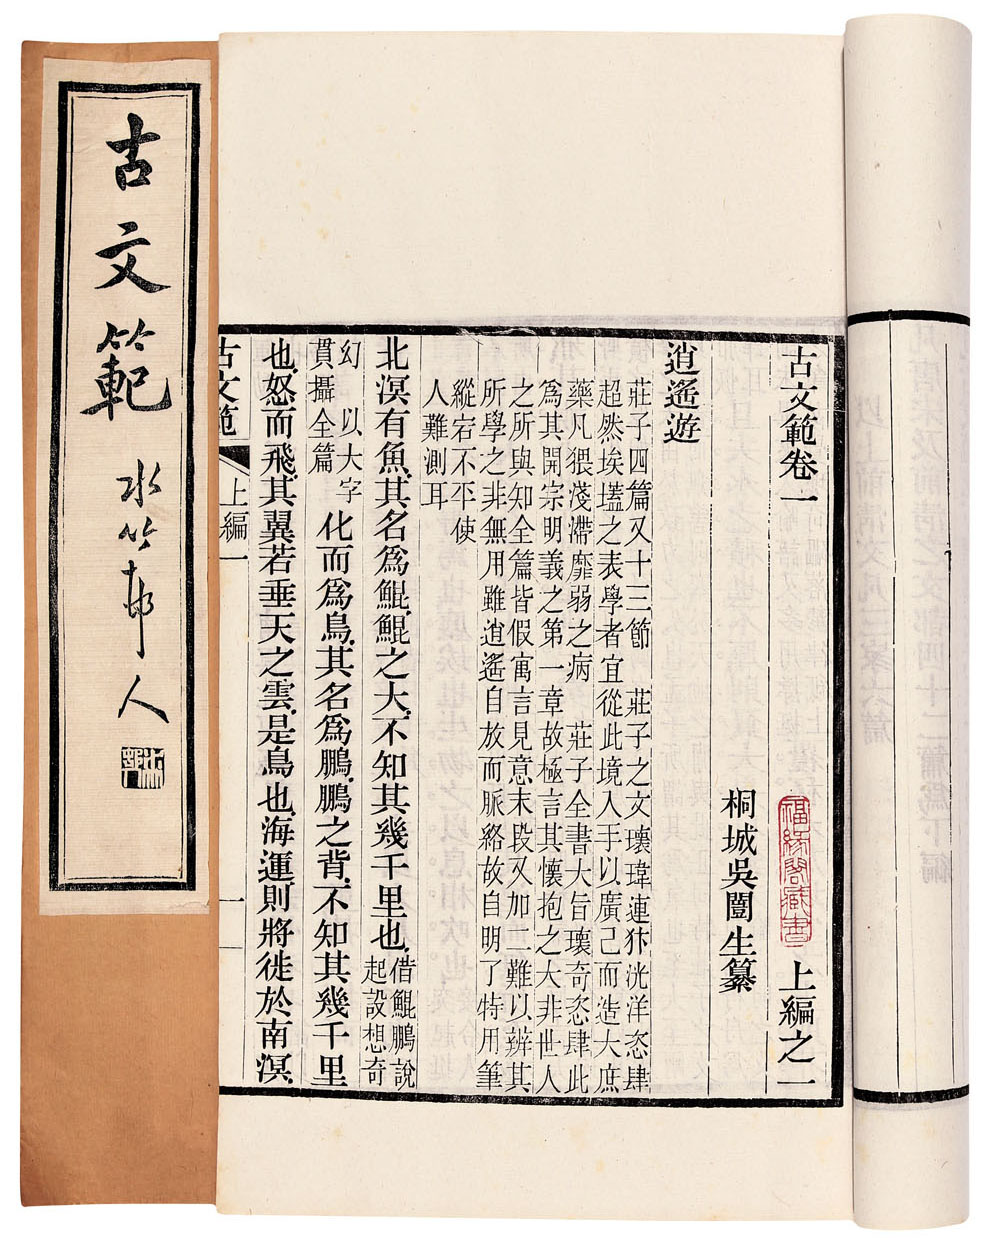 古文範
水竹邨人
古文範卷一 上編之一
福緣閣藏書
桐城吳闓生纂
逍遙遊
莊子四篇又十三節 莊子之文瓌瑋連犿洸洋恣肆
超然埃壒之表學者宜從此境入手以廣己而造大庶
藥凡猥淺滯靡弱之病 莊子全書大旨瓌奇恣肆此
爲其開宗明義之第一章故極言其懷抱之大非世人
之所與知全篇皆假寓言見意末段又加二難以辨其
所學之非無用雖逍遙自放而脈絡故自明了特用筆
縱宕不平使
人難測耳
北溟有魚.其名爲鯤.鯤之大.不知其幾千里也.借鯤鵬說起設想奇
幻 以大字貫攝全篇 化而爲鳥.其名爲鵬.鵬之背.不知其幾千里
也.怒而飛.其翼若垂天之雲.是鳥也.海運則將徙於南溟.
古文範 上編一 一